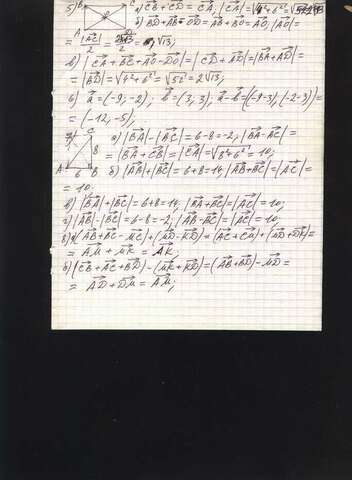 5) B C а) C⃗B + C⃗D = C⃗A, |C⃗A| = √4²+6² = √52
A D б) B⃗D + A⃗B + O⃗D = A⃗B + B⃗O = A⃗O, |A⃗O| =
= |A⃗C|/2 = 2√13/2 = √13;
в) |C⃗A + B⃗C + A⃗O − D⃗O| = |C⃗D + A⃗D| = |B⃗A + A⃗D| =
= |B⃗D| = √4²+6² = √52 = 2√13;
6) a⃗ = (−9, −2), b⃗ = (3, 3), a⃗ − b⃗ = ((−9−3), (−2−3)) =
= (−12, −5);
7) C а) |B⃗A| − |B⃗C| = 6−8 = −2, |B⃗A − B⃗C| =
8 = |B⃗A + C⃗B| = |C⃗A| = √8²+6² = 10;
A 6 B б) |A⃗B| + |B⃗C| = 6+8 = 14, |A⃗B + B⃗C| = |A⃗C| =
= 10.
в) |B⃗A| + |B⃗C| = 6+8 = 14, |B⃗A + B⃗C| = |A⃗C| = 10;
г) |A⃗B| − |B⃗C| = 6−8 = −2, |A⃗B − B⃗C| = |A⃗C| = 10;
8) а) (A⃗B + B⃗C − M⃗C) + (M⃗D − K⃗D) = (A⃗C + C⃗M) + (M⃗D + D⃗K) =
= A⃗M + M⃗K = A⃗K.
б) (C⃗B + A⃗C + B⃗D) − (M⃗K + K⃗D) = (A⃗B + B⃗D) − M⃗D =
= A⃗D + D⃗M = A⃗M;